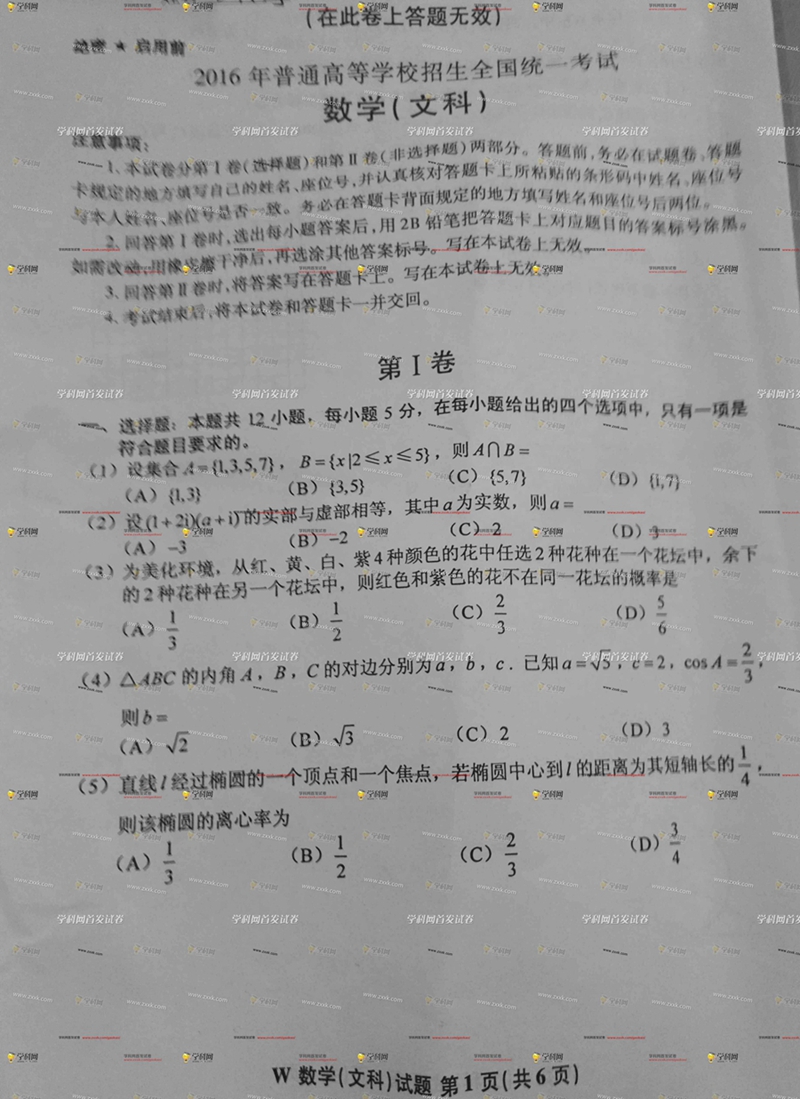 (在此卷上答题无效)
绝密 ★ 启用前
2016 年普通高等学校招生全国统一考试
数学(文科)
注意事项:
1. 本试卷分第Ⅰ卷(选择题)和第Ⅱ卷(非选择题)两部分。答题前,务必在试题卷、答题
卡规定的地方填写自己的姓名、座位号,并认真核对答题卡上所粘贴的条形码中姓名、座位号
与本人姓名、座位号是否一致。务必在答题卡背面规定的地方填写姓名和座位号后两位。
2. 回答第Ⅰ卷时,选出每小题答案后,用 2B 铅笔把答题卡上对应题目的答案标号涂黑。
如需改动,用橡皮擦干净后,再选涂其他答案标号。写在本试卷上无效。
3. 回答第Ⅱ卷时,将答案写在答题卡上。写在本试卷上无效。
4. 考试结束后,将本试卷和答题卡一并交回。
第Ⅰ卷
一、选择题:本题共 12 小题,每小题 5 分,在每小题给出的四个选项中,只有一项是
符合题目要求的。
(1)设集合 A={1,3,5,7},B={x|2≤x≤5},则 A∩B=
(A){1,3} (B){3,5} (C){5,7} (D){1,7}
(2)设(1+2i)(a+i)的实部与虚部相等,其中 a 为实数,则 a=
(A)-3 (B)-2 (C)2 (D)3
(3)为美化环境,从红、黄、白、紫 4 种颜色的花中任选 2 种花种在一个花坛中,余下
的 2 种花种在另一个花坛中,则红色和紫色的花不在同一花坛的概率是
(A)1/3 (B)1/2 (C)2/3 (D)5/6
(4)△ABC 的内角 A,B,C 的对边分别为 a,b,c.已知 a=√5,c=2,cos A=2/3,
则 b=
(A)√2 (B)√3 (C)2 (D)3
(5)直线 l 经过椭圆的一个顶点和一个焦点,若椭圆中心到 l 的距离为其短轴长的 1/4,
则该椭圆的离心率为
(A)1/3 (B)1/2 (C)2/3 (D)3/4
W 数学(文科)试题 第 1 页(共 6 页)
学科网首发试卷
学科网
www.zxxk.com